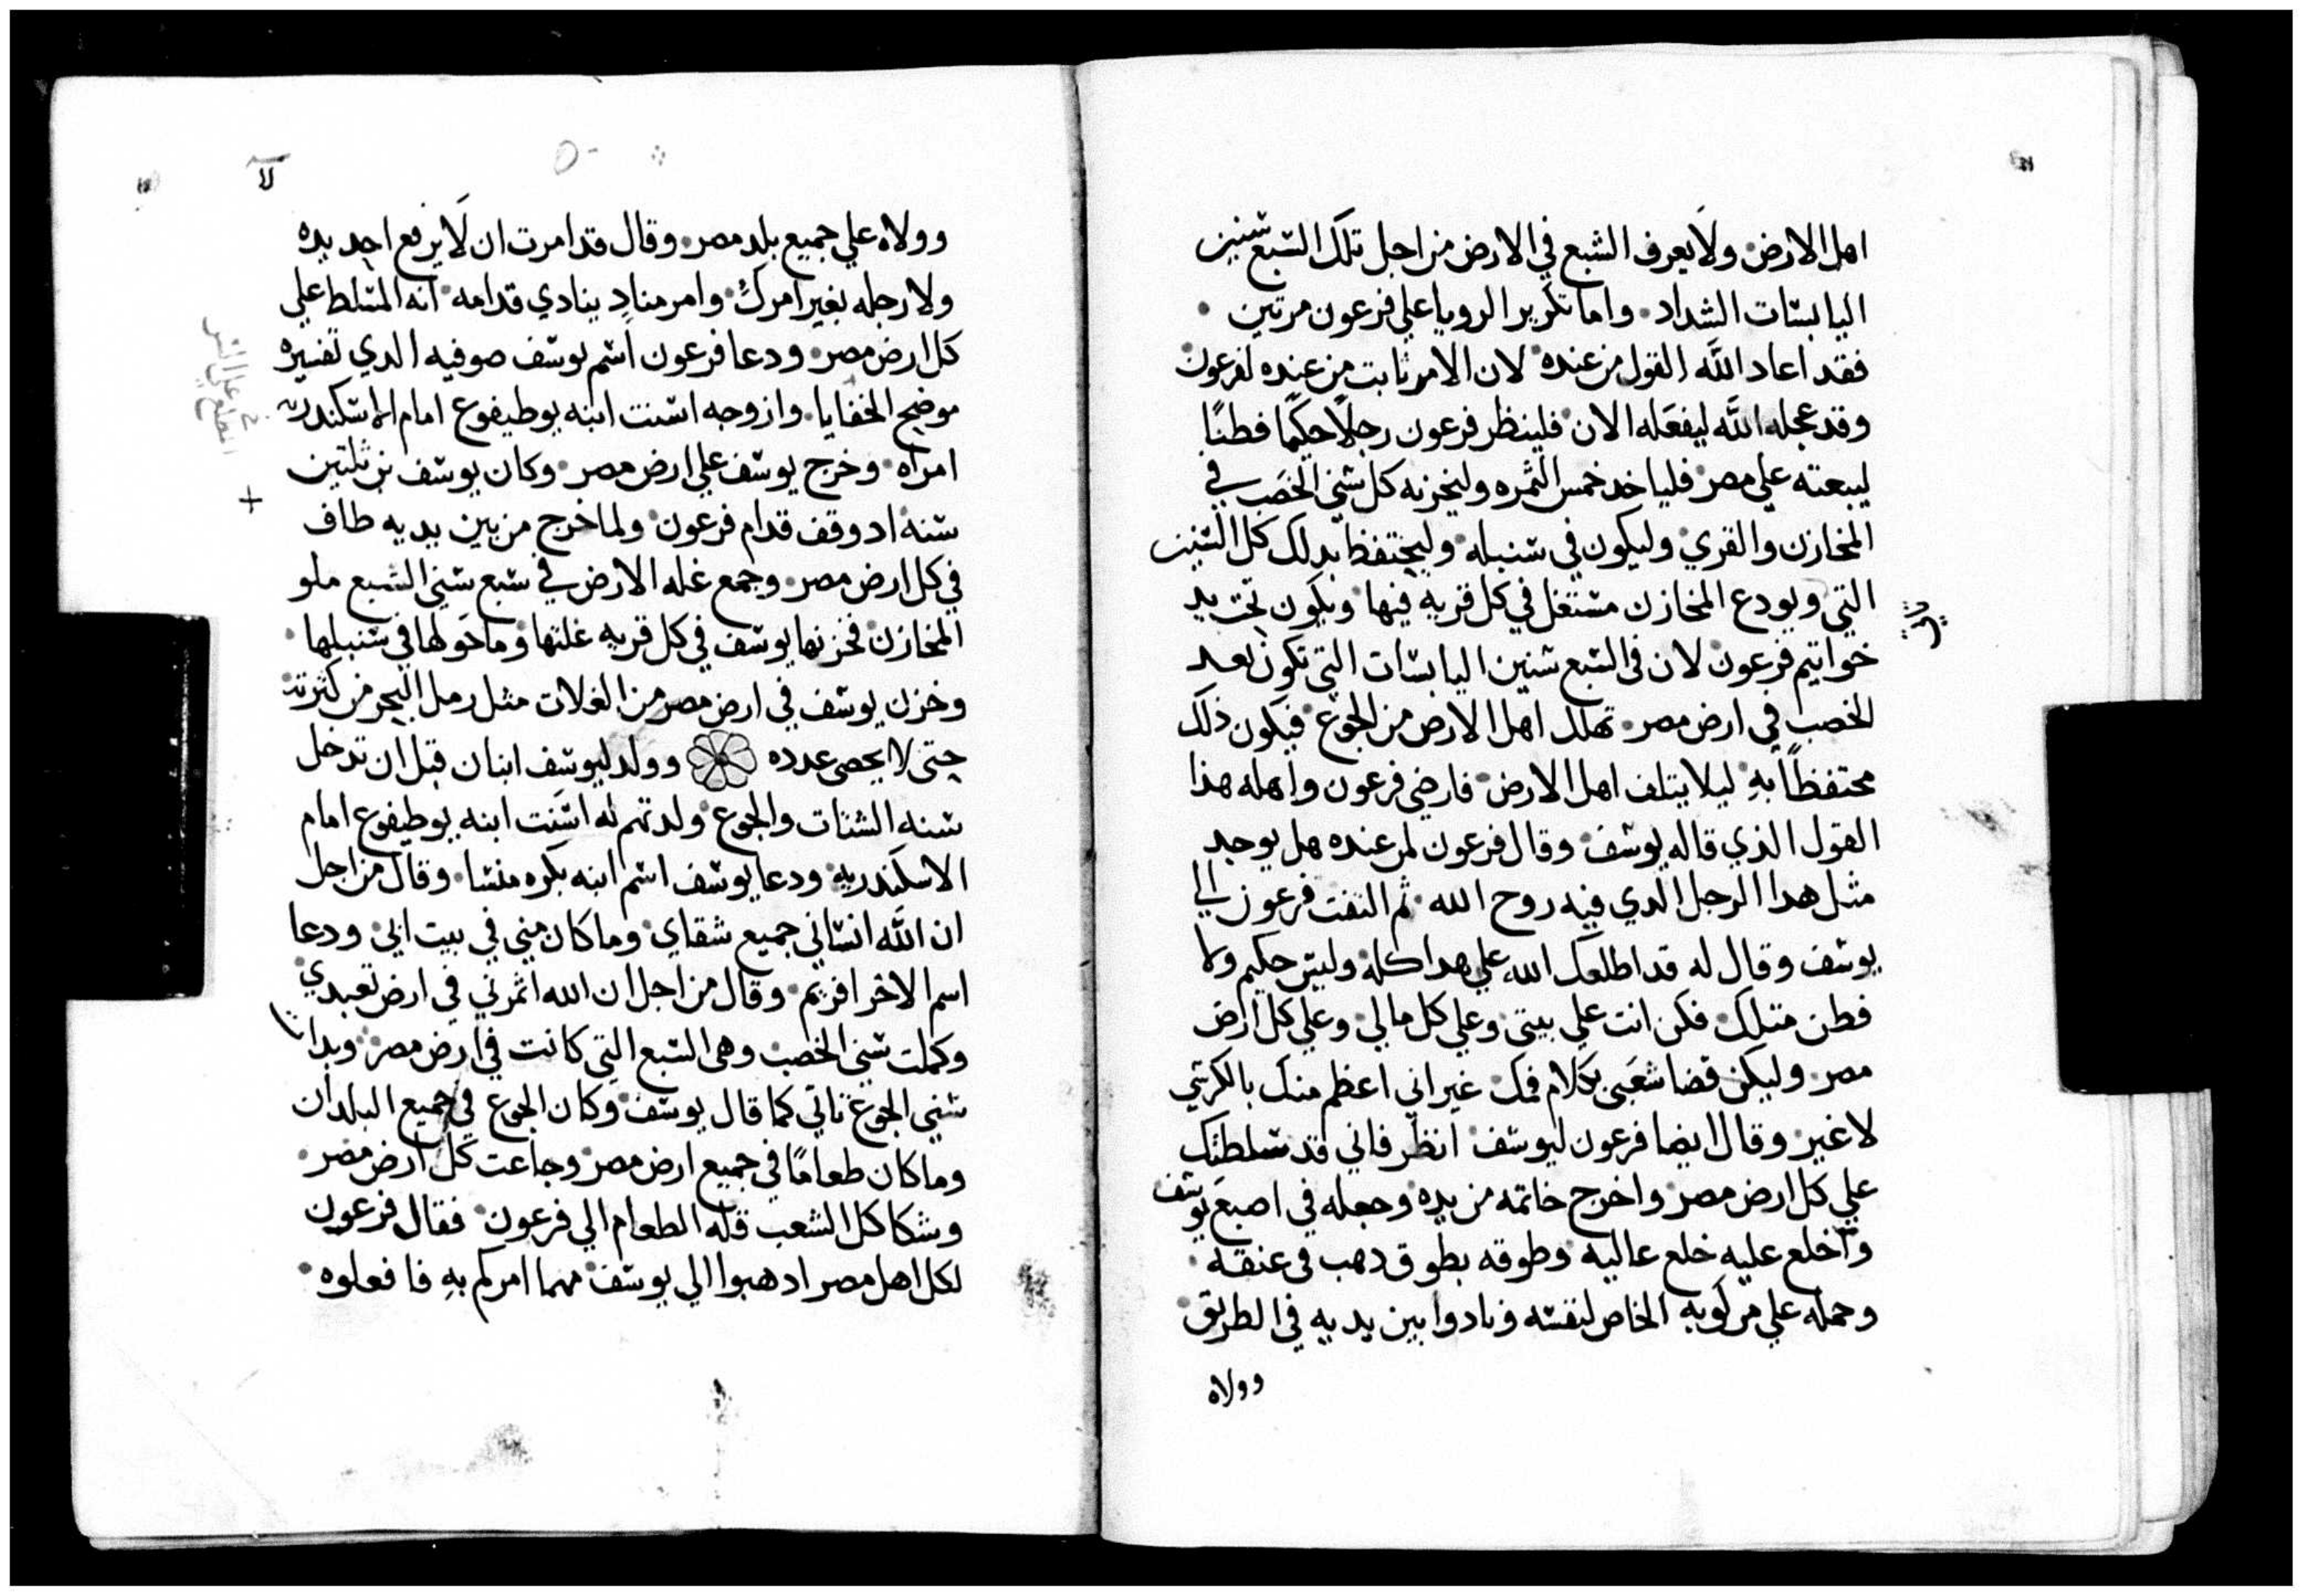 اهل الارض ولا يعرف الشبع في الارض من اجل تلك السبع سنين
اليابسات الشداد واما تكرير الرويا علي فرعون مرتين
فقد اعاد الله القول من عنده لان الامر ثابت من عنده لفرعون
وقد عجله الله ليفعله الان فلينظر فرعون رجلًا حكيمًا فطنًا
ليبعته علي مصر فلياخد خمس الثمره وليخزنه كل سني الخصب في
المخازن والقري وليكون في سنبله وليحتفظ بدلك كل السنين
التي ويودع المخازن مستغل في كل قريه فيها ويكون تحت يد
خواتيم فرعون لان في السبع سنين اليابسات التي تكون بعد
الخصب في ارض مصر تهلك اهل الارض من الجوع فيكون ذلك
محتفظًا بهِ ليلا يتلف اهل الارض فارضي فرعون واهله هذا
القول الذي قاله يوسف وقال فرعون لمن عنده هل يوجد
مثل هدا الرجل الدي فيه روح الله ثم التفت فرعون الي
يوسف وقال له قد اطلعك الله علي هدا كله وليس حكيم ولا
فطن متلك فكن انت علي بيتي وعلي كل مالي وعلي كل ارض
مصر وليكن قضا شعبي بكلام فمك غير اني اعظم منك بالكرسي
لا غير وقال ايضا فرعون ليوسف انظر فاني قد سلطتك
علي كل ارض مصر واخرج خاتمه من يده وجعله في اصبع يوسف
واخلع عليه خلع عاليه وطوقه بطوق دهب في عنقه
وحمله علي مركوبه الخاص لنفسه ونادوا بين يديه في الطريق
وولاه
لا
وولاه علي جميع بلد مصر وقال قد امرت ان لا يرفع احد يده
ولا رجله بغير امرك وامر منادٍ ينادي قدامه انه المسلط علي
كل ارض مصر ودعا فرعون اسم يوسف صوفيه الدي تفسيره
موضح الخفايا وازوجه اسنت ابنه يوطيفوع امام الاسكندريه
امراه وخرج يوسف علي ارض مصر وكان يوسف بن ثلتين
سنه اد وقف قدام فرعون ولما خرج من بين يديه طاف
في كل ارض مصر وجمع غله الارض في سبع سني الشبع ملو
المخازن فخزنها يوسف في كل قريه غلتها وما حولها في سنبلها
وخزن يوسف في ارض مصر من الغلات مثل رمل البحر من كثرته
حتى لا يحصى عدده وولد ليوسف ابنان قبل ان تدخل
سنه الشتات والجوع ولدتهم له اسنت ابنه يوطيفوع امام
الاسكندريه ودعا يوسف اسم ابنه بكره منسا وقال من اجل
ان الله انساني جميع شقاي وما كان مني في بيت ابي ودعا
اسم الاخر افريم وقال من اجل ان الله اثمرني في ارض تعبدي
وكملت سني الخصب وهي السبع التي كانت في ارض مصر وبدات
سني الجوع تاتي كما قال يوسف وكان الجوع في جميع البلدان
وما كان طعامًا في جميع ارض مصر وجاعت كل ارض مصر
وشكا كل الشعب قله الطعام الي فرعون فقال فرعون
لكل اهل مصر ادهبوا الي يوسف مهما امركم بهِ فافعلوه